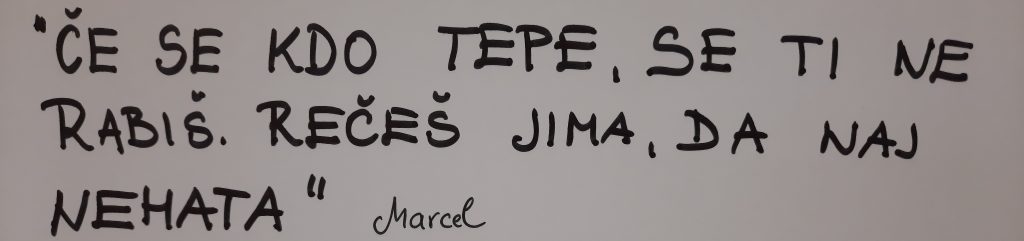 "ČE SE KDO TEPE, SE TI NE
RABIŠ. REČEŠ JIMA, DA NAJ
NEHATA" Marcel